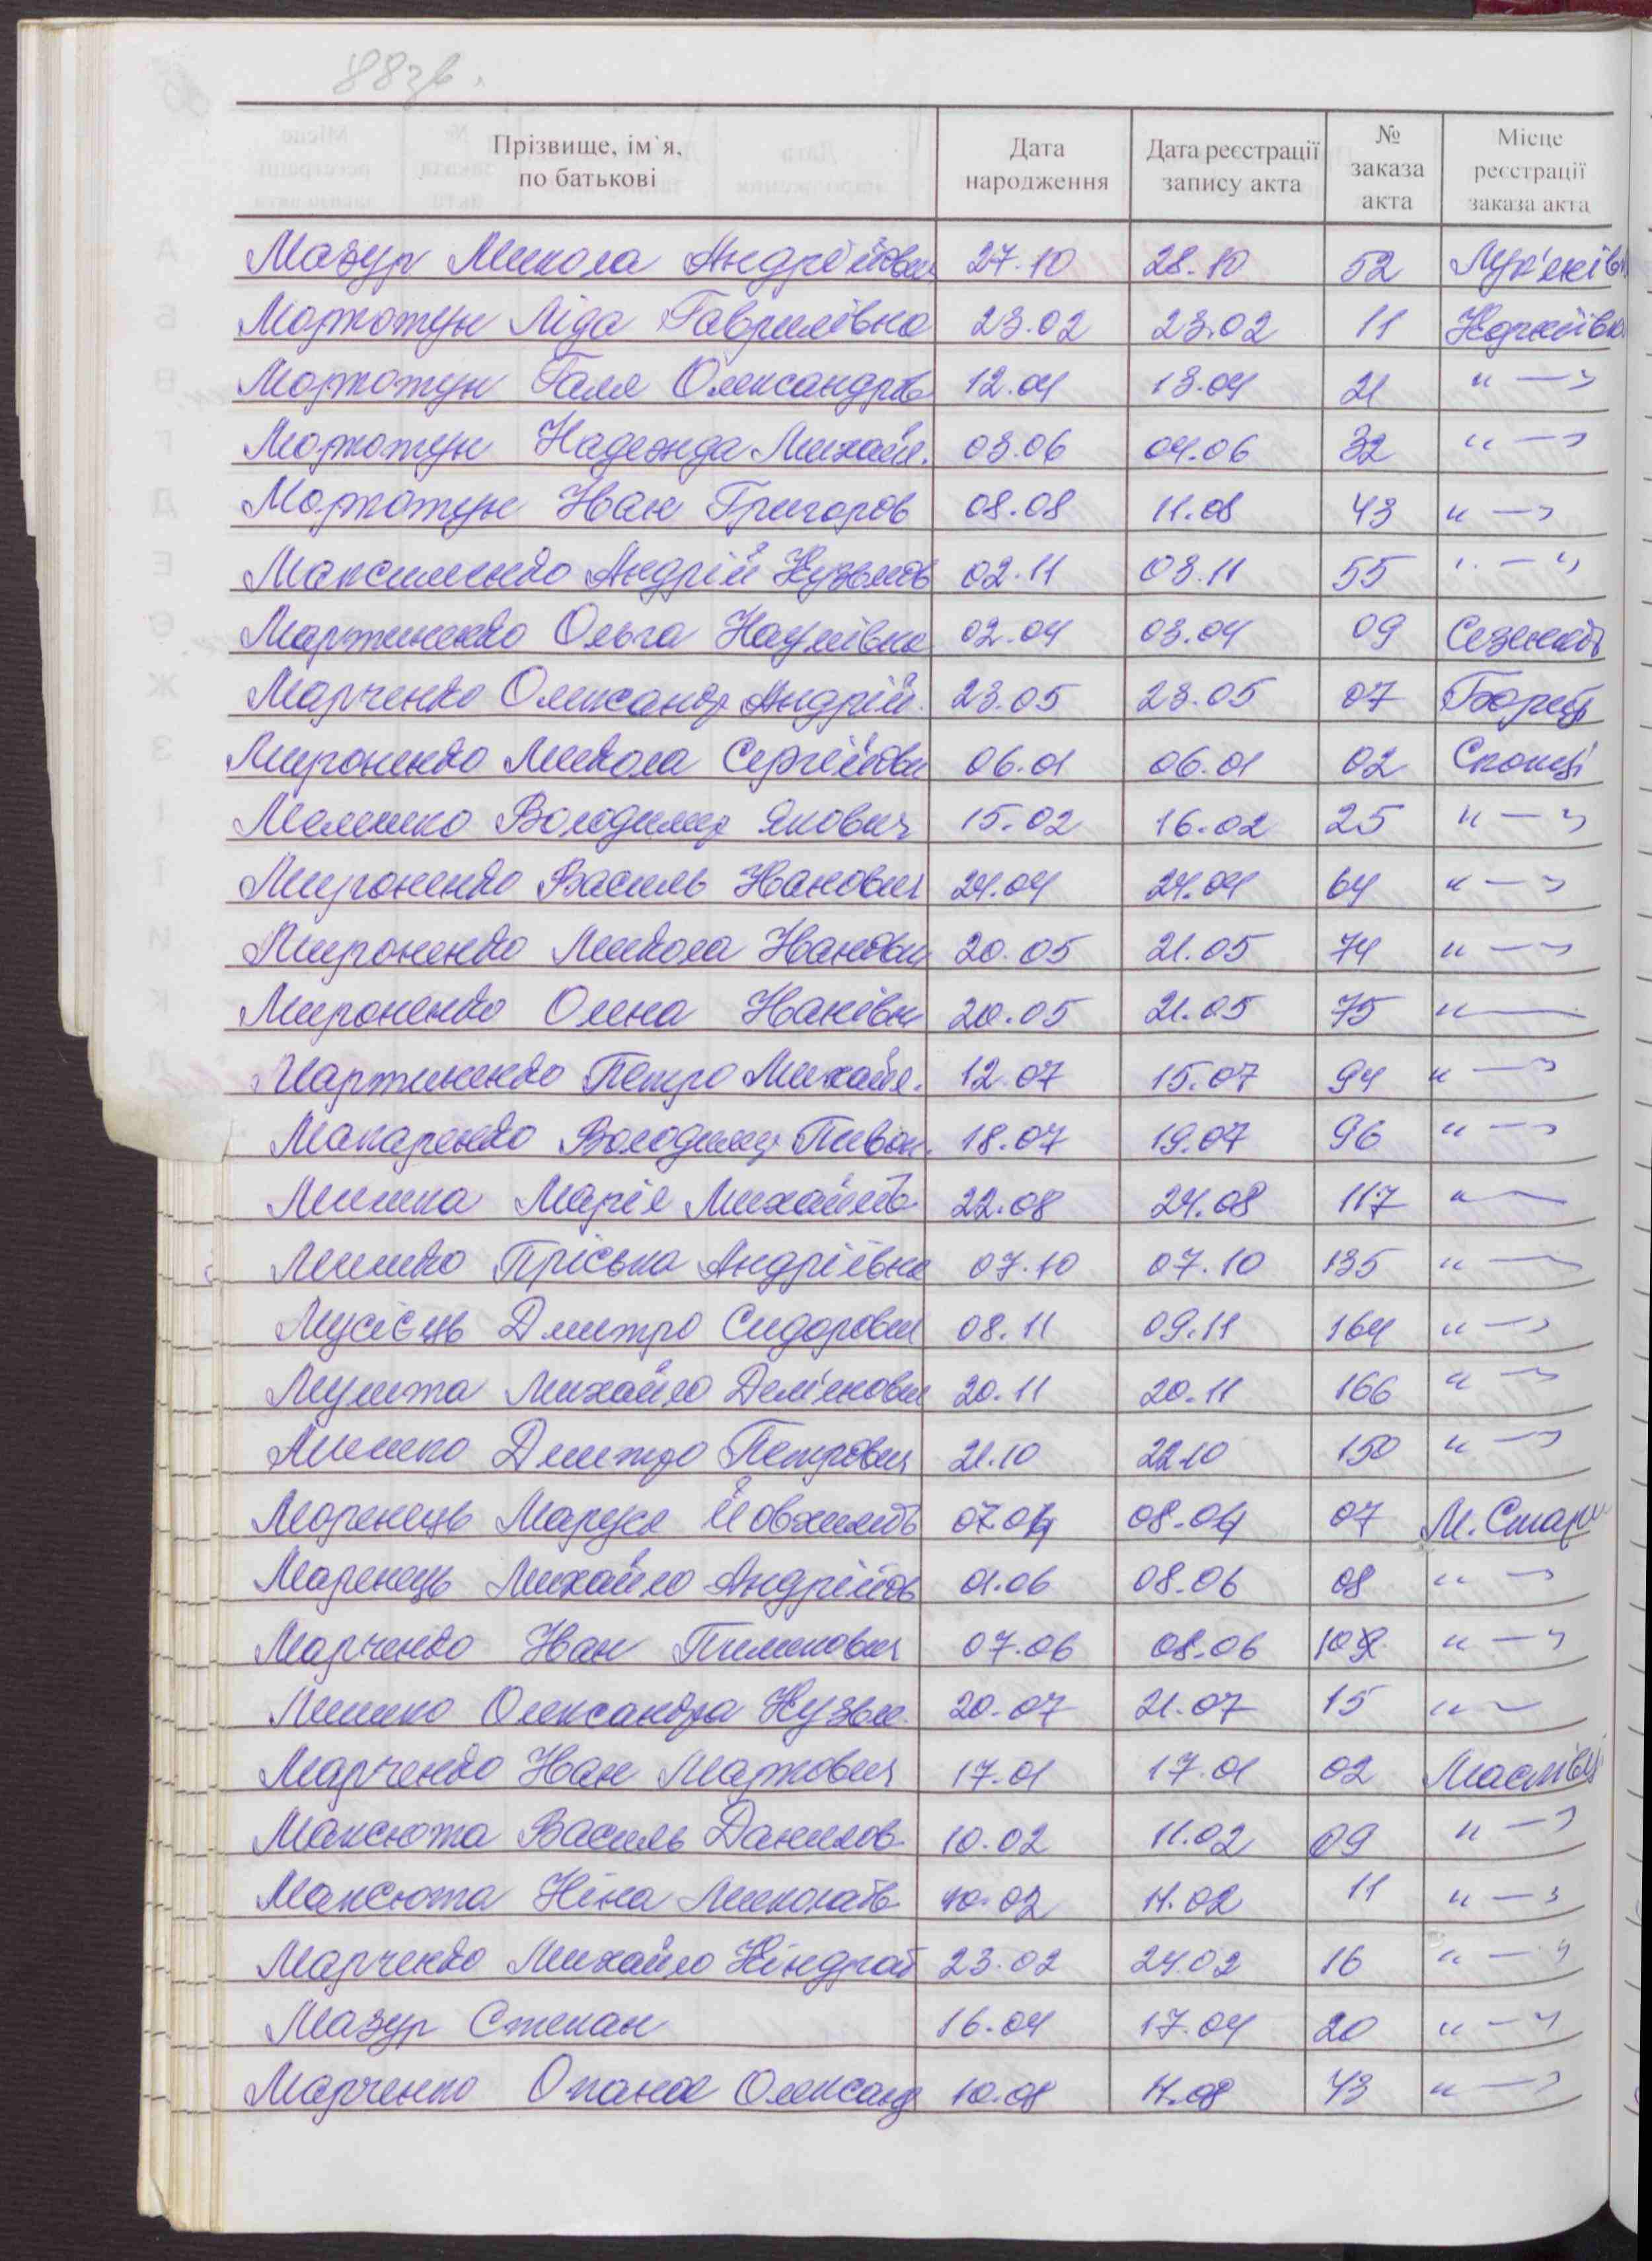 88зв.
Прізвище, ім`я, по батькові | Дата народження | Дата реєстрації запису акта | № заказа акта | Місце реєстрації заказа акта
Мазур Микола Андрійович 27.10 28.10 52 Лук'янів
Моркотун Ліда Гаврилівна 23.02 23.02 11
Моркотун Галя Олександрів 12.04 13.04 21 " — "
Моркотун Надежда Михайл. 03.06 04.06 32 " — "
Моркотун Іван Григоров 08.08 11.08 43 " — "
Максименко Андрій Кузьмов 02.11 03.11 55 " — "
Мартиненко Ольга Наумівна 02.04 03.04 09 Сезенків
Марченко Олександр Андрій. 23.05 23.05 07 Борщ
Мироненко Микола Сергійови 06.01 06.01 02 Скопці
Мелешко Володимир Якович 15.02 16.02 25 " — "
Мироненко Василь Іванович 24.04 24.04 64 " — "
Мироненко Микола Іванови 20.05 21.05 74 " — "
Мироненко Олена Іванівн 20.05 21.05 75 " —
Мартиненко Петро Михайл. 12.07 15.07 94 " — "
Макаренко Володимир Пивон. 18.07 19.07 96 " — "
Мишка Марія Михайлів 22.08 24.08 117 " —
Мишко Пріська Андріївна 07.10 07.10 135 " —
Мусієць Дмитро Сидорови 08.11 09.11 164 " — "
Мушта Михайло Дем'янови 20.11 20.11 166 " — "
Мишко Дмитро Петрович 21.10 22.10 150 " — "
Моренець Маруся Йовхимів 07.04 08.04 07 М. Стари
Маренець Михайло Андрійов 01.06 08.06 08 " — "
Марченко Іван Пилипович 07.06 08.06 " — "
Мишко Олександра Кузьм. 20.07 21.07 15 " —
Марченко Іван Маркович 17.01 17.01 02 Масківці
Максюта Василь Данилов. 10.02 11.02 09 " — "
Максюта Ніна Миколаїв 10.02 11.02 11 " — "
Марченко Михайло Кіндрат 23.02 24.02 16 " — "
Мазур Степан 16.04 17.04 20 " — "
Марченко Опанас Олександ 10.08 11.08 43 " — "